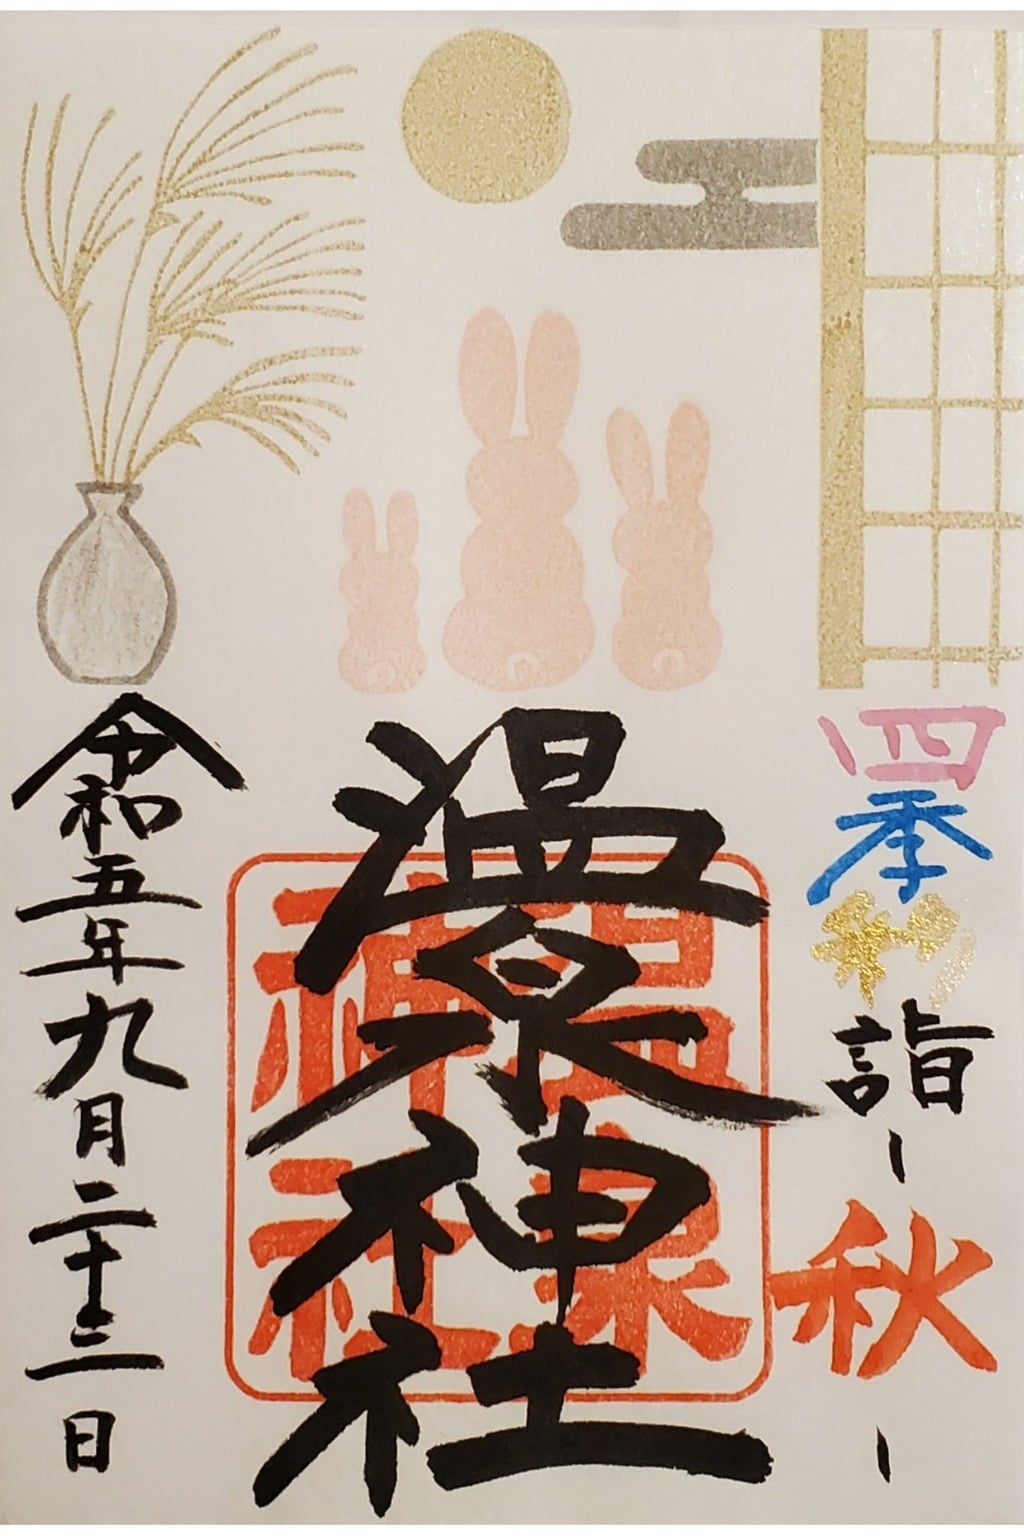 四季彩詣
-秋-
温泉神社
温泉
神社
令和五年九月二十三日